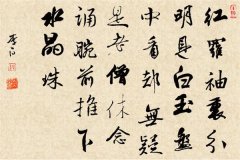 紅羅袖裏分
明見白玉盤
中看却無疑
是老僧休念
誦腕前推下
水晶珠
李白